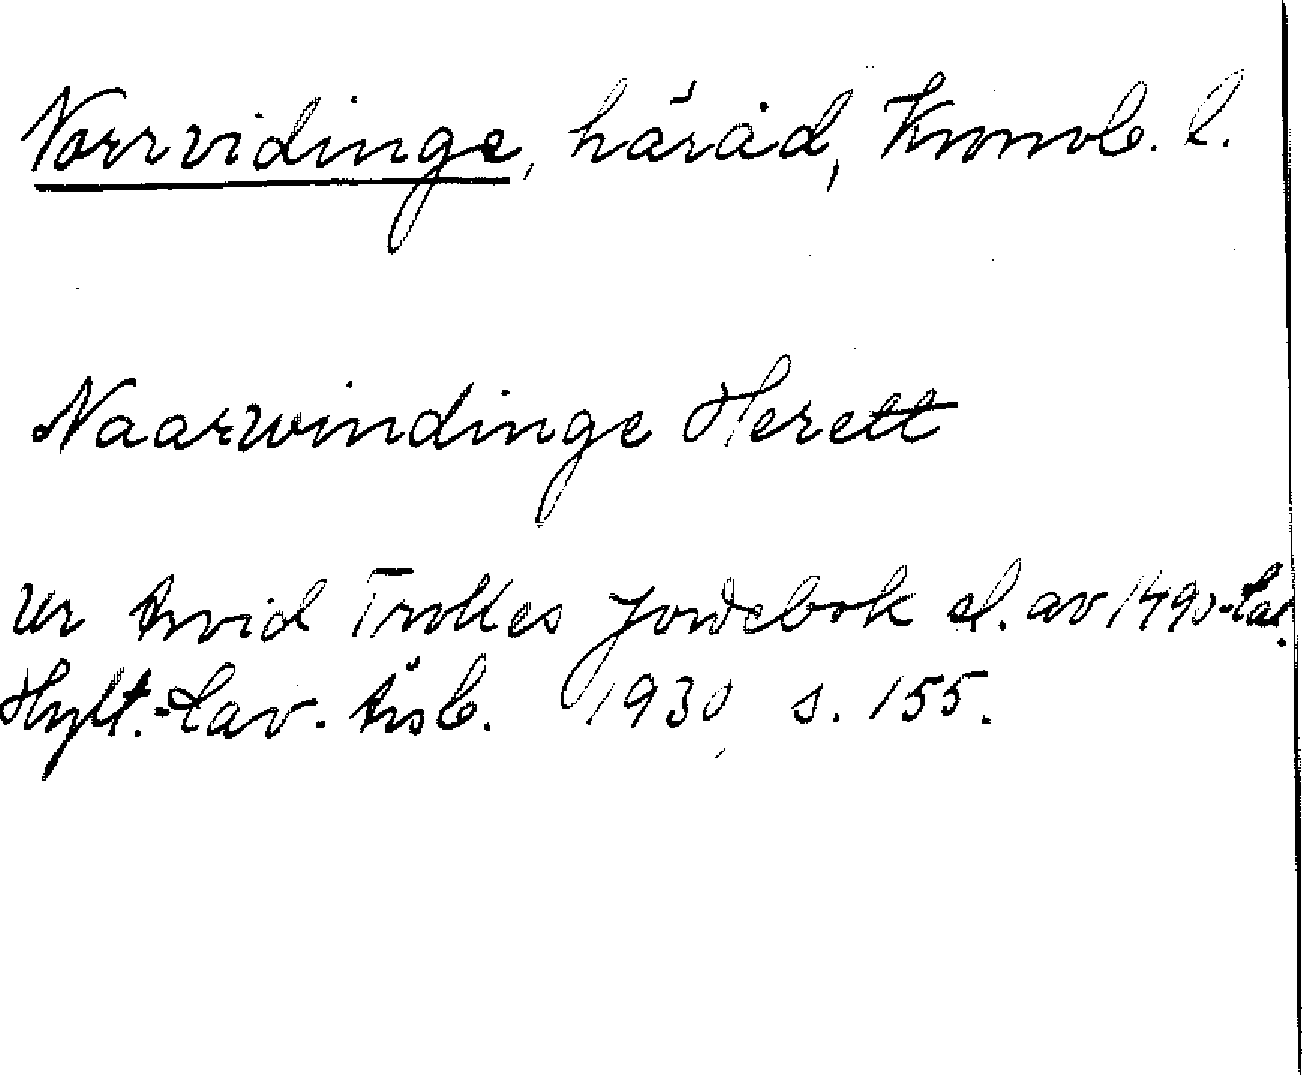 Norrvidinge, härad, Kronob. l.
Naarwindinge Herett
Ur Arvid Trolles Jordebok sl. av 1490-tal.
Hylt.-Cav. Årsb. 1930, s. 155.